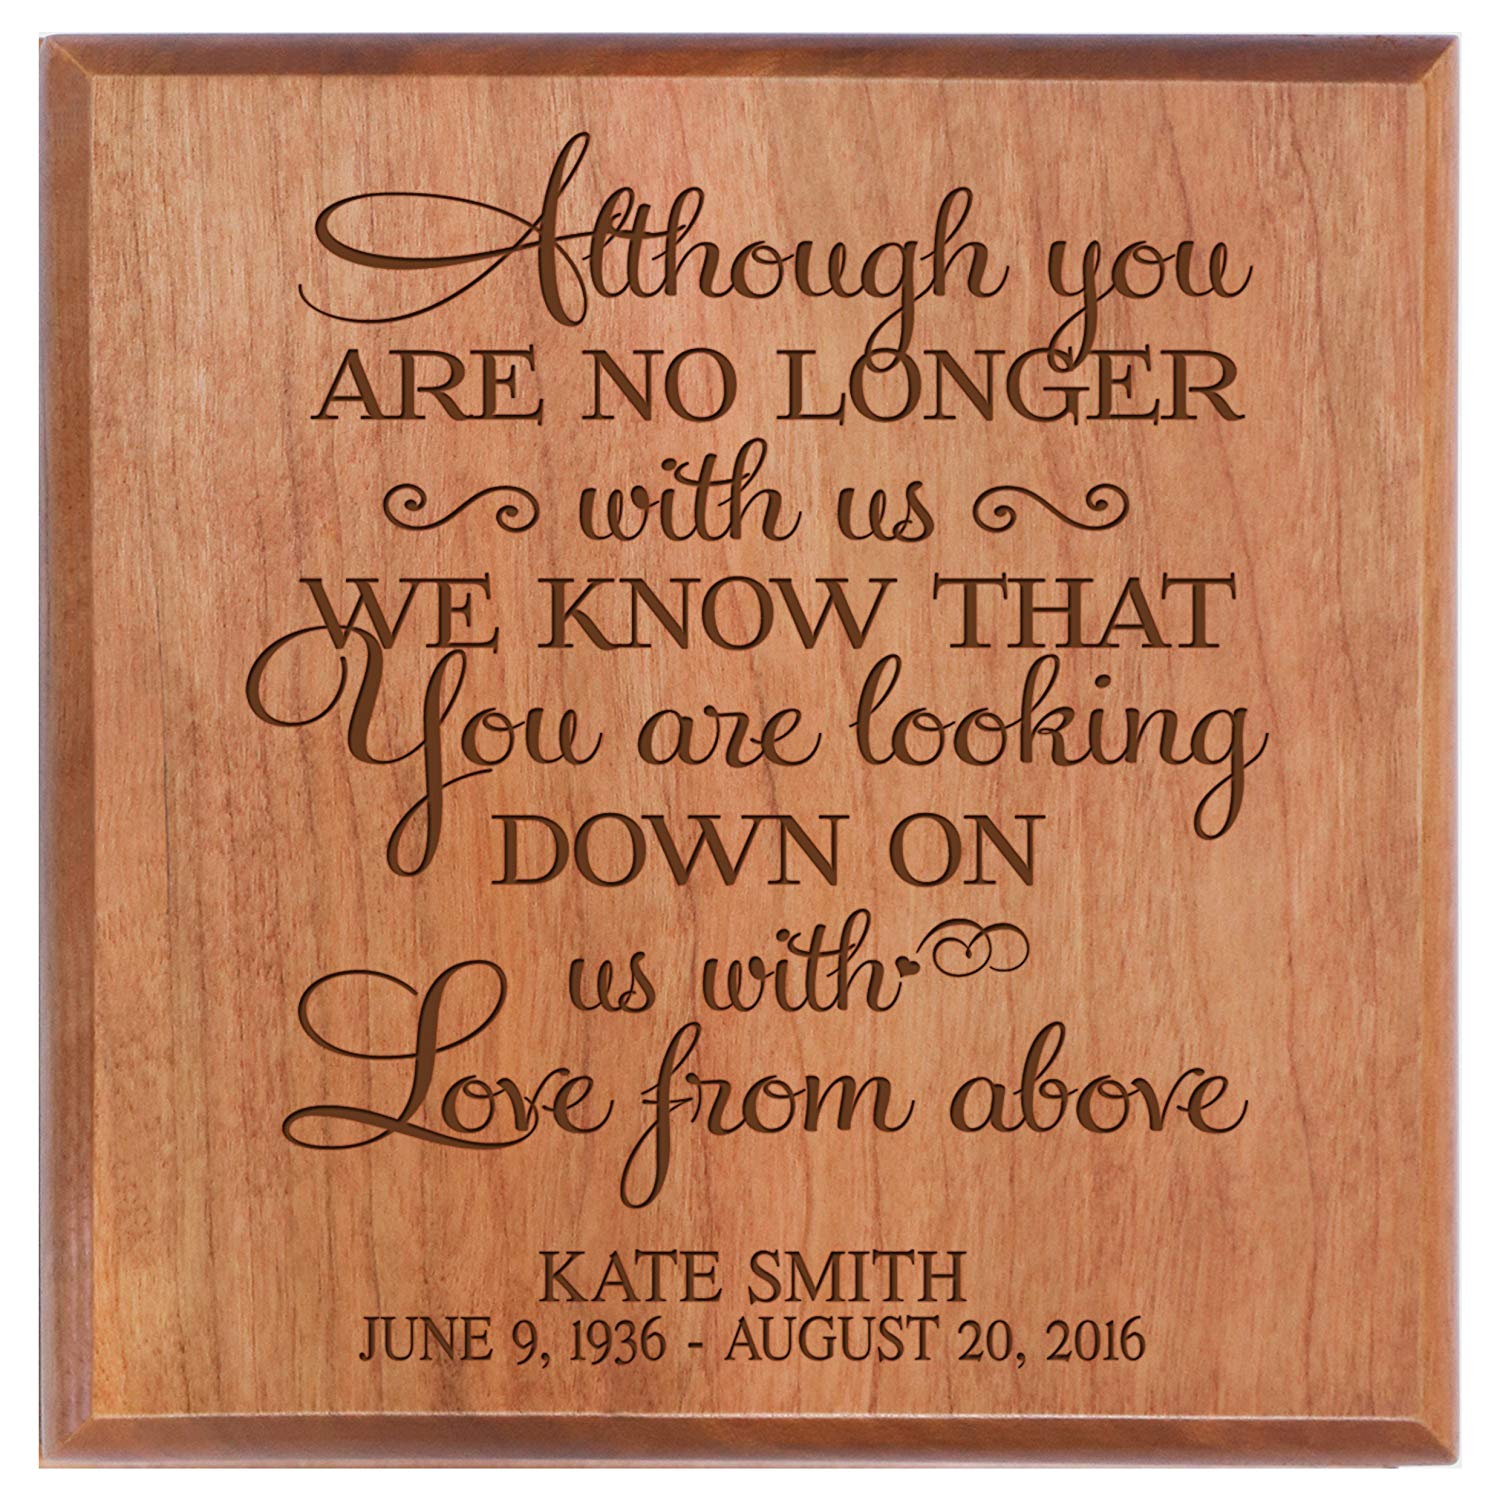 Although you
ARE NO LONGER
with us
WE KNOW THAT
You are looking
DOWN ON
us with
Love from above
KATE SMITH
JUNE 9, 1936 - AUGUST 20, 2016